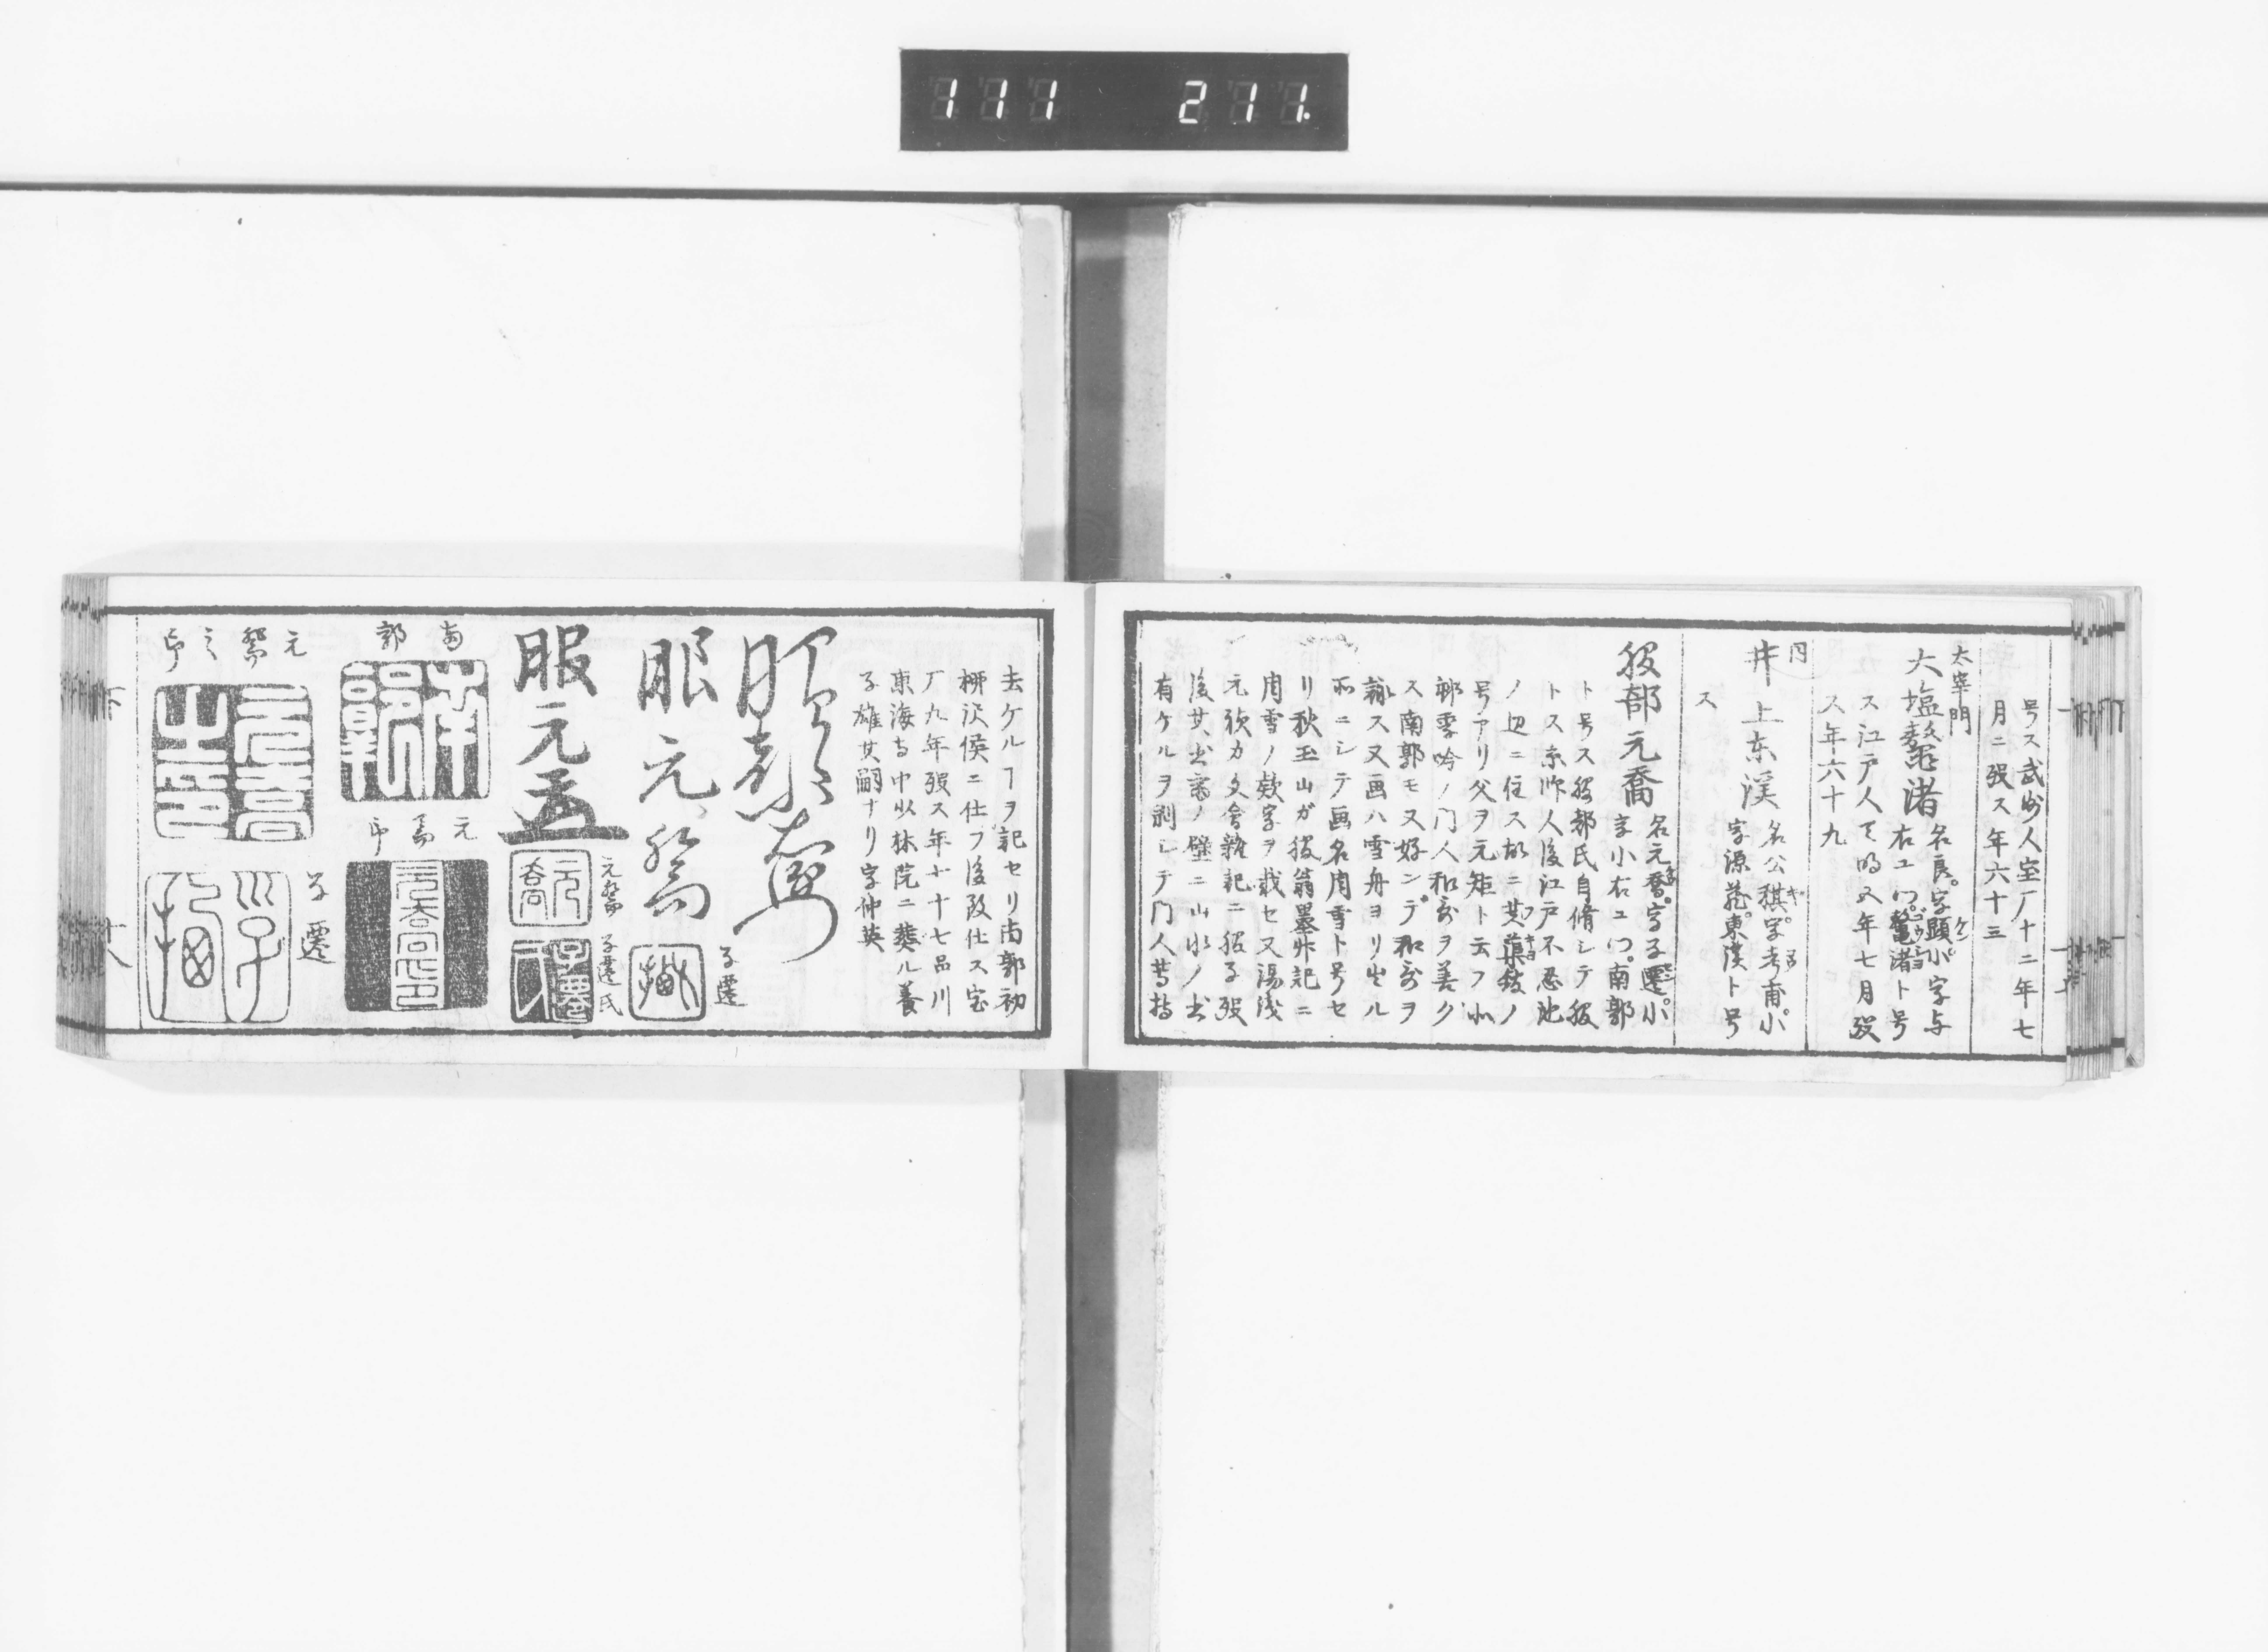 111 211.
号ス武州人宝厂十二年七
月ニ歿ス年六十三
太宰門
大塩鼇渚
名良。字顕。小字与
右エ門。鼇渚ト号
ス江戸人天明五年七月歿
ス年六十九
同
井上東渓
名公祺。字考甫。小
字源蔵。東渓ト号
ス
服部元喬
名元喬。字子遷。小
字小右エ門。南郭
ト号ス服部氏自脩シテ服
トス京師人後江戸不忍池
ノ辺ニ住ス故ニ其蕖館ノ
号アリ父ヲ元矩ト云フ北
邨季吟ノ门人和哥ヲ善ク
ス南郭モ又好ンデ和哥ヲ
詠ス又画ハ雪舟ヨリ出ル
所ニシテ画名周雪ト号セ
リ秋玉山ガ服翁墨竹記ニ
周雪ノ款字ヲ載セ又湯浅
元禎カ文会雑記ニ服子歿
後其書斎ノ壁ニ山水ノ書
有ケルヲ剥シテ门人某持
去ケルヿヲ記セリ南郭初
柳沢侯ニ仕フ後致仕ス宝
厂九年歿ス年七十七品川
東海寺中少林院ニ葬ル養
子雄其嗣ナリ字仲英
服元喬
子遷
服元
元喬
子遷氏
南郭
元喬印
元喬之印
子遷